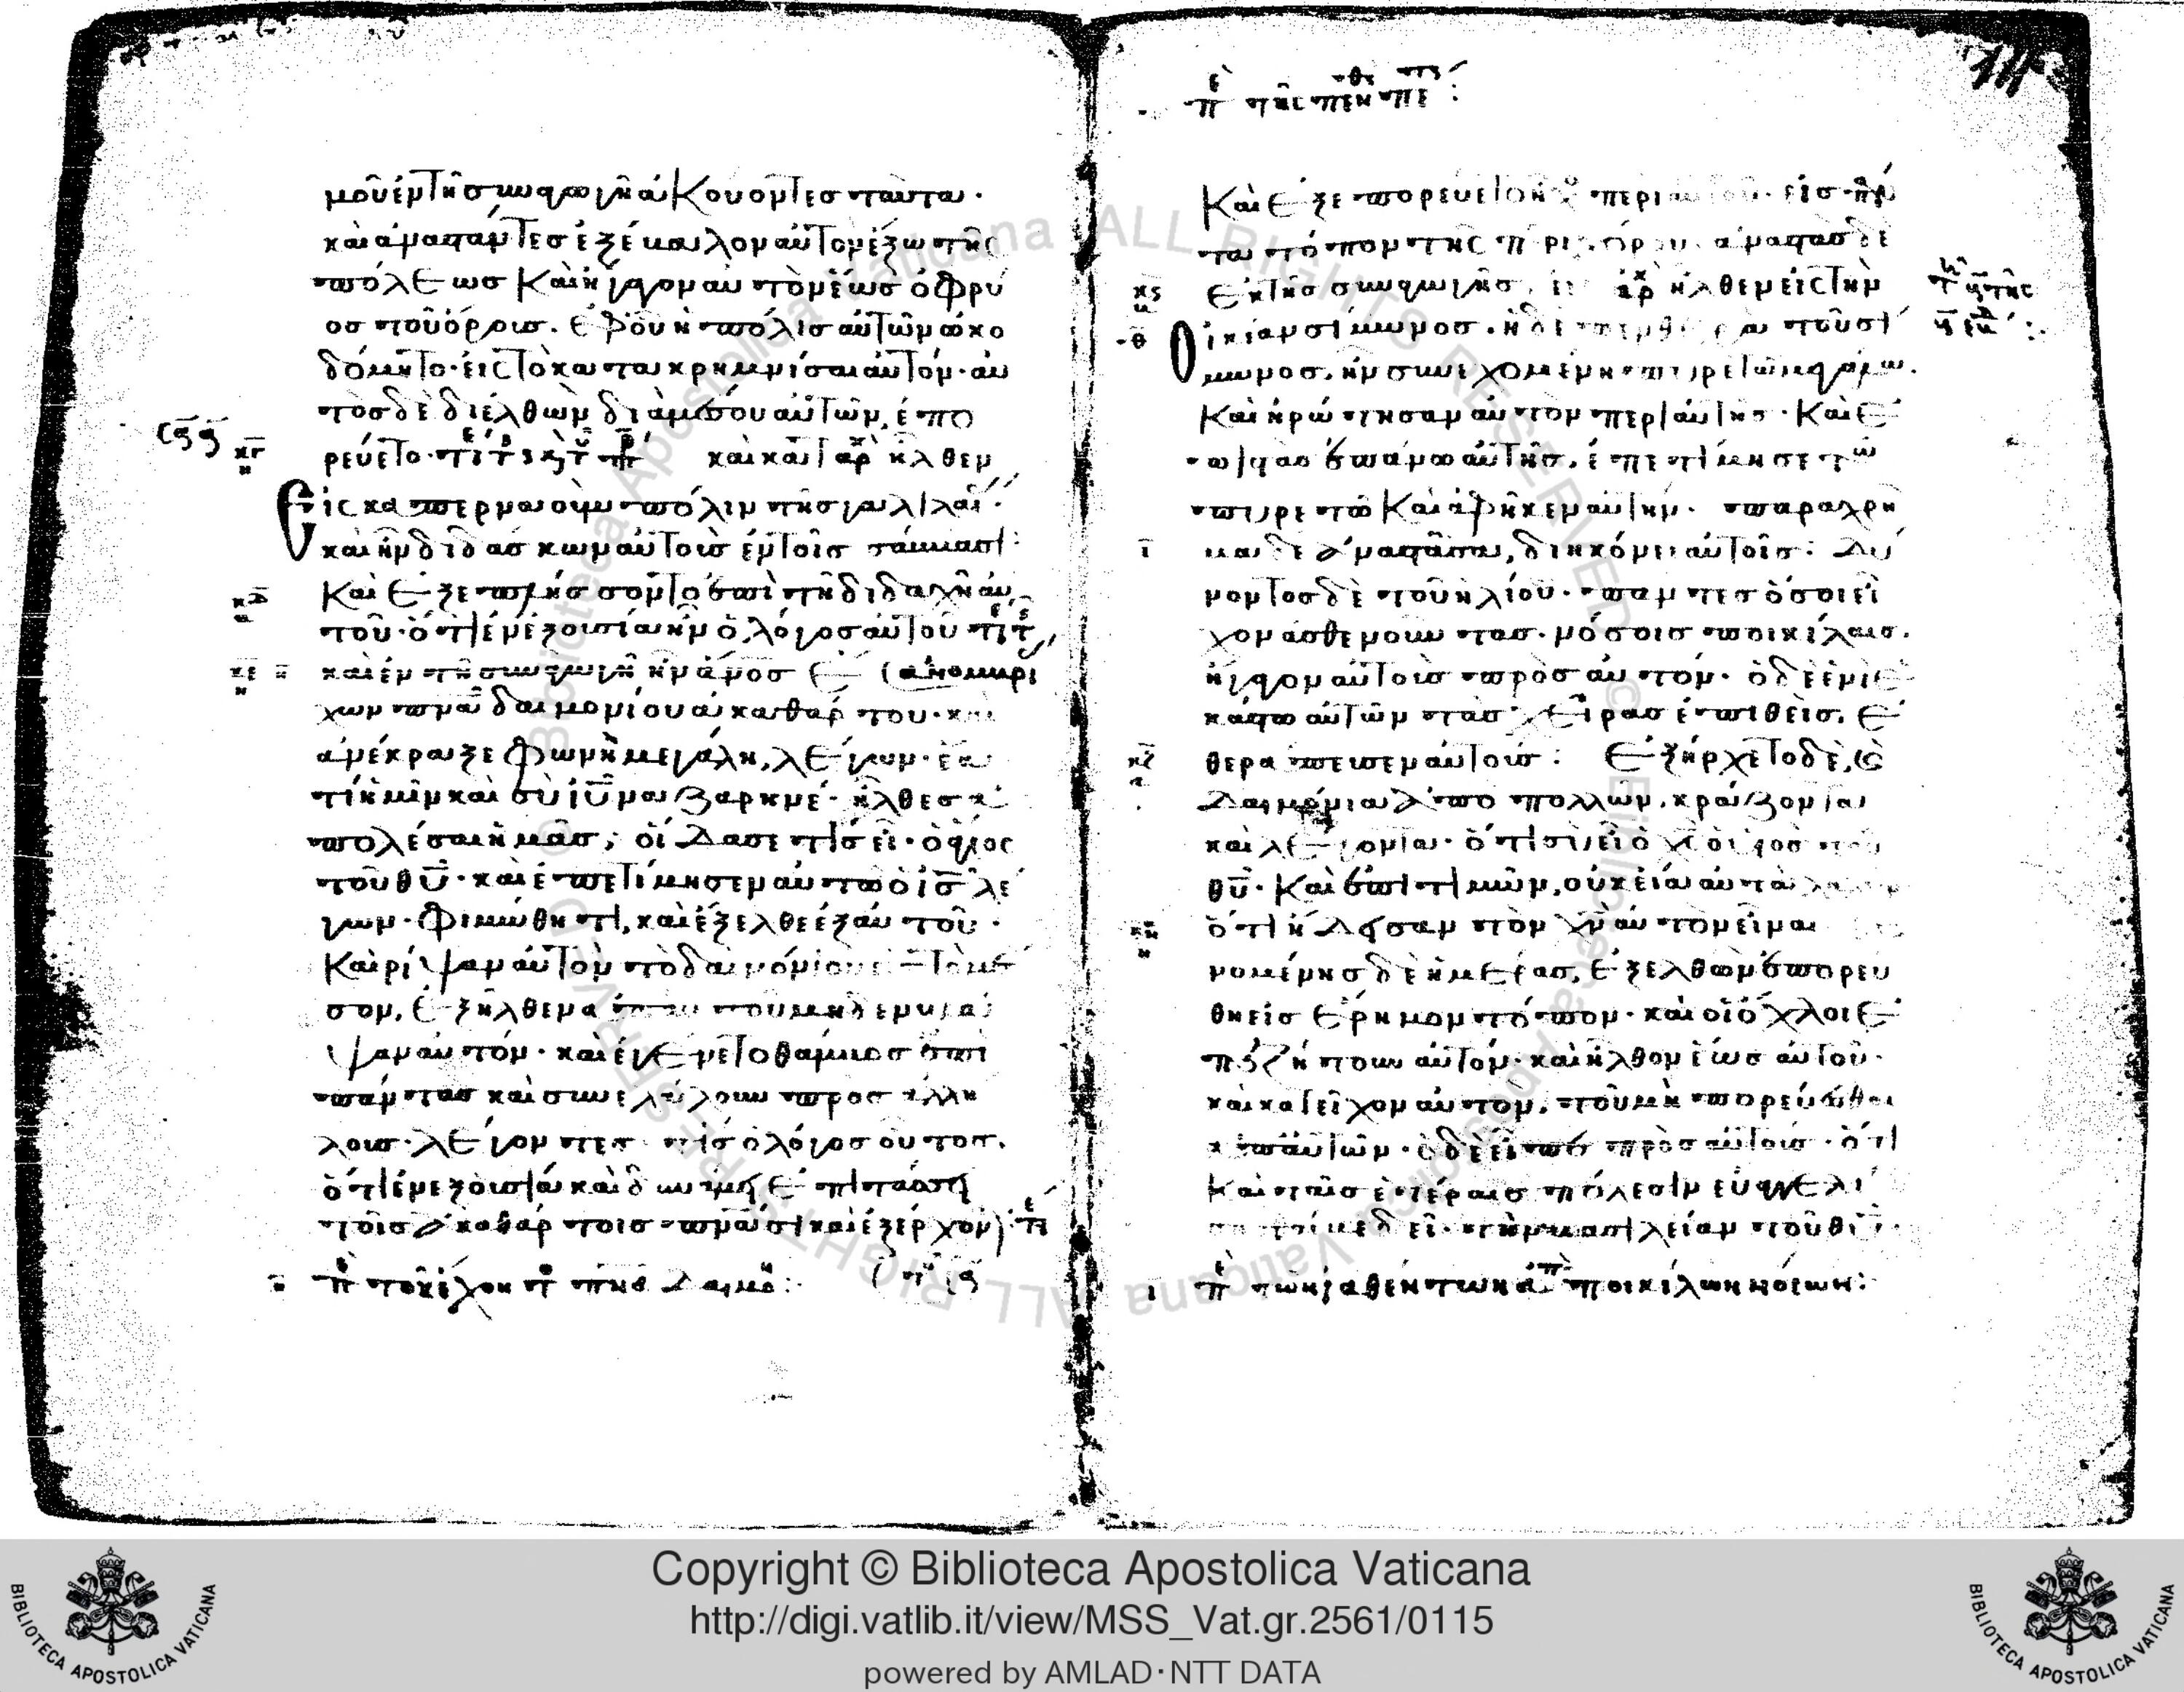 μοῦ ἐν τῆ συναγωγῆ ἀκούοντες ταῦτα·
καὶ ἀναστάντες ἐξέβαλον αὐτὸν ἔξω τῆς
πόλεως καὶ ἤγαγον αὐτὸν ἕως ὀφρύ
ος τοῦ ὄρους. ἐφ οὗ ἡ πόλις αὐτῶν ὠκο
δόμητο· εἰς τὸ κατακρημνίσαι αὐτόν· αὐ
τὸς δὲ διελθὼν διὰ μέσου αὐτῶν, ἐπο
ρεύετο· καὶ κατῆλθεν
Εἰς καπερναοὺμ πόλιν τῆς γαλιλαί
καὶ ἦν διδάσκων αὐτοὺς ἐν τοῖς σάββασι:
κδ
Καὶ ἐξεπλήσσοντο ἐπὶ τῆ διδαχῆ αὐ
τοῦ· ὅτι ἐν ἐξουσία ἦν ὁ λόγος αὐτοῦ
κε
καὶ ἐν τῆ συναγωγῆ ἦν ἄνος ἔ
χων πνα δαιμονίου ἀκαθάρτου· και
ἀνέκραξε φωνῆ μεγάλη, λέγων· ἔα
τί ἡμῖν καὶ σὺ ιυ ναζαρηνέ· ἦλθες ἀ
πολέσαι ἡμᾶς; οἶδά σε τίς εἶ· ὁ ἅγιος
τοῦ θυ· καὶ ἐπετίμησεν αὐτῶ ὁ ις λέ
γων· φιμώθητι, καὶ ἔξελθε ἐξ αὐτοῦ·
Καὶ ρίψαν αὐτὸν τὸ δαιμόνιον εἰς τὸ μέ
σον, ἐξῆλθεν ἀπ αὐτοῦ μηδὲν βλά
ψαν αὐτόν· καὶ ἐγένετο θάμβος ἐπὶ
πάντας καὶ συνελάλουν πρὸς ἀλλή
λους· λέγοντες τίς ὁ λόγος οὗτος.
ὅτι ἐν ἐξουσία καὶ δυνάμει ἐπιτάσσει
τοῖς ἀκαθάρτοις πνασι καὶ ἐξέρχον
Καὶ ἐξεπορεύετο ἦχος περὶ αὐτοῦ· εἰς πάν
τα τόπον τῆς περιχώρου· ἀναστὰς δὲ
κς
ἐκ τῆς συναγωγῆς, ἦλθεν εἰς τὴν
θ
Οἰκίαν σίμωνος. ἡ δὲ πενθερὰ τοῦ σί
μωνος, ἦν συνεχομένη πυρετῶ μεγάλω.
Καὶ ἠρώτησαν αὐτὸν περὶ αὐτῆς· Καὶ ἐ
πιστὰς ἐπάνω αὐτῆς, ἐπετίμησε τῶ
πυρετῶ καὶ ἀφῆκεν αὐτήν· παραχρῆ
ι
μα δὲ ἀναστᾶσα, διηκόνει αὐτοῖς: Δύ
νοντος δὲ τοῦ ἡλίου· πάντες ὅσοι εἶ
χον ἀσθενοῦντας· νόσοις ποικίλαις.
ἤγαγον αὐτοὺς πρὸς αὐτόν· ὁ δὲ ἑνὶ ἑ
κάστω αὐτῶν τὰς χεῖρας ἐπιθείς, ἐ
κζ
θεράπευσεν αὐτούς: Ἐξήρχετο δὲ, καὶ
Δαιμόνια ἀπὸ πολλῶν, κράζοντα
καὶ λέγοντα· ὅτι σὺ εἶ ὁ χς ὁ υἱὸς τοῦ
θυ· Καὶ ἐπιτιμῶν, οὐκ εἴα αὐτὰ λαλεῖν
κη
ὅτι ἤδεισαν τὸν χν αὐτὸν εἶναι
νομένης δὲ ἡμέρας, ἐξελθὼν ἐπορεύ
θη εἰς ἔρημον τόπον· καὶ οἱ ὄχλοι ἐ
πεζήτουν αὐτόν· καὶ ἦλθον ἕως αὐτοῦ·
καὶ κατεῖχον αὐτὸν, τοῦ μὴ πορεύεσθαι
ἀπ αὐτῶν· ὁ δὲ εἶπεν πρὸς αὐτούς· ὅτι
Καὶ ταῖς ἑτέραις πόλεσιν εὐαγγελί
σασθαί με δεῖ· τὴν βασιλείαν τοῦ θυ·
Copyright © Biblioteca Apostolica Vaticana
http://digi.vatlib.it/view/MSS_Vat.gr.2561/0115
powered by AMLAD·NTT DATA
BIBLIOTECA APOSTOLICA VATICANA
BIBLIOTECA APOSTOLICA VATICANA